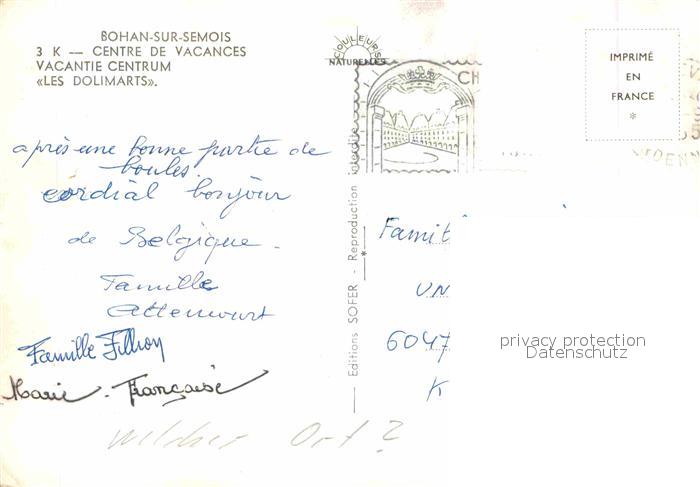 BOHAN-SUR-SEMOIS
3 K — CENTRE DE VACANCES
VACANTIE CENTRUM
«LES DOLIMARTS».
COULEURS
NATURELLES
IMPRIMÉ
EN
FRANCE
*
CH
après une bonne partie de
boules.
cordial bonjour
de Belgique.
Famille
Attencourt
Famille Fillion
Marie-Françoise
welcher Ort?
Editions SOFER - Reproduction interdite
*
Famil
UN
6047
K
privacy protection
Datenschutz